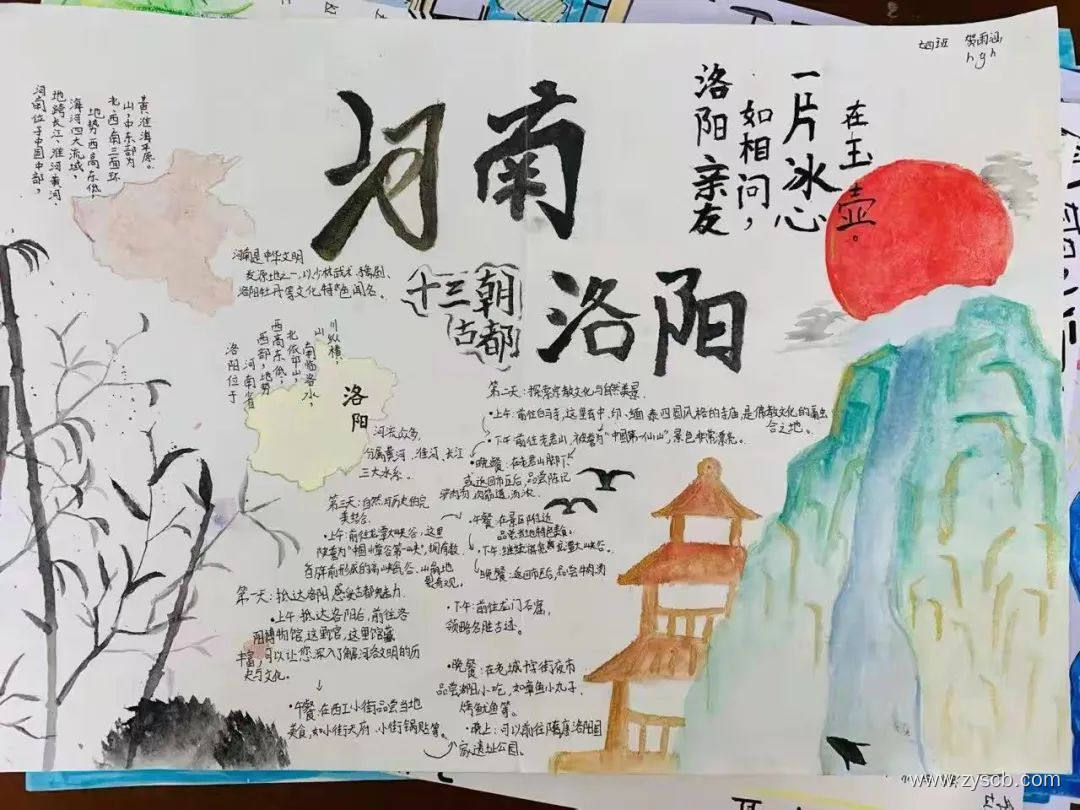 贺雨涵
hgh
河南
洛阳亲友
如相问，
一片冰心
在玉壶。
河南位于中国中部，
地跨长江、淮河、黄河、
海河四大流域，
地势西高东低，
北、西、南三面环
山，中东部为
黄淮海平原。
河南是中华文明
发源地之一，以少林武术、豫剧、
洛阳牡丹等文化特色闻名。
十三朝
古都
洛阳
洛阳位于
河南省
西部，地势
西高东低，
北依邙山，
南临洛水，
山
川纵横，
洛阳
河流众多，
分属黄河、淮河、长江
三大水系。
第一天：抵达洛阳，感受古都魅力
•上午：抵达洛阳后，前往洛
阳博物馆，这里馆藏
丰富，可以让您深入了解河洛文明的历
史与文化。
•午餐：在西工小街品尝当地
美食，如小街天府、小街锅贴等。
•下午：前往龙门石窟，
领略名胜古迹。
•晚餐：在老城十字街夜市
品尝小吃，如章鱼小丸子、
烤鱿鱼等。
•晚上：可以前往隋唐洛阳国
家遗址公园。
第二天：探索宗教文化与自然美景
•上午：前往白马寺，这里有中、印、缅、泰四国风格的寺庙，是佛教文化的
合之地。
•下午：前往老君山，被誉为“中国第一仙山”，景色非常漂亮。
•晚餐：在老君山脚下
或返回市区后，品尝
第三天：自然与历史的完
美结合
•上午：前往龙潭大峡谷，这里
被誉为“中国嶂谷第一峡”，拥有数
百万年前形成的高峡瓮谷、山崩地
裂奇观。
•午餐：在景区附近
品尝当地特色美食。
•下午：继续探索龙潭大峡谷。
•晚餐：返回市区后，品尝牛肉汤
www.zyscb.com